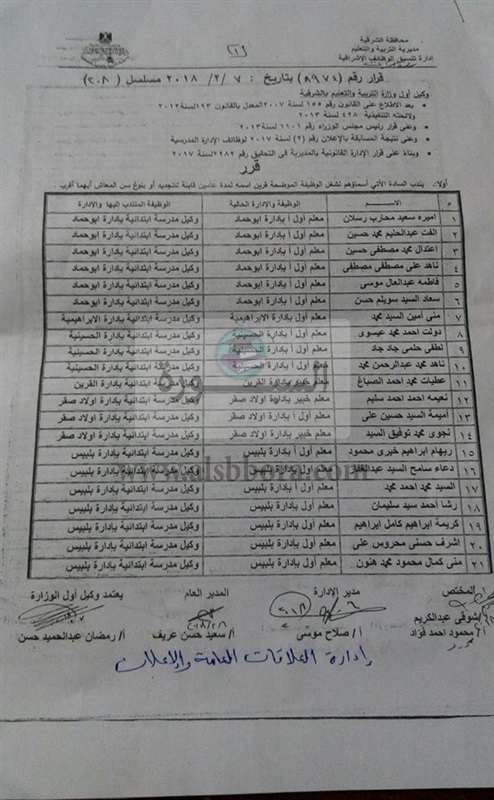 محافظة الشرقية
مديرية التربية والتعليم
إدارة تنسيق الوظائف الإشرافية
(١)
قرار رقم (٨٩٧٤) بتاريخ : ٧ /٢/ ٢٠١٨ مسلسل (٢٠٨)
وكيل أول وزارة التربية والتعليم بالشرقية
بعد الاطلاع على القانون رقم ١٥٥ لسنة ٢٠٠٧ المعدل بالقانون ٩٣ لسنة ٢٠١٢
ولائحته التنفيذية ٤٢٨ لسنة ٢٠١٣
وعلى قرار رئيس مجلس الوزراء ١١٠١ لسنة ٢٠١٣
وعلى نتيجة المسابقة بالإعلان رقم (٢) لسنة ٢٠١٧ لوظائف الإدارة المدرسية
وبناءً على قرار الإدارة القانونية بالمديرية في التحقيق رقم ٢٢٨٢ لسنة ٢٠١٧
قرر
أولا: يندب السادة الآتي أسماؤهم لشغل الوظيفة الموضحة قرين اسمه لمدة عامين قابلة للتجديد أو بلوغ سن المعاش أيهما أقرب
م الاســـم الوظيفة والإدارة الحالية الوظيفة المنتدب إليها والإدارة
١ اميره سعيد محارب رسلان معلم أول أ بإدارة ابوحماد وكيل مدرسة ابتدائية بإدارة ابوحماد
٢ الفت عبدالحليم محمد حسين معلم أول أ بإدارة ابوحماد وكيل مدرسة ابتدائية بإدارة ابوحماد
٣ اعتدال محمد مصطفى حسين معلم أول أ بإدارة ابوحماد وكيل مدرسة ابتدائية بإدارة ابوحماد
٤ ناهد على مصطفى مصطفى معلم أول أ بإدارة ابوحماد وكيل مدرسة ابتدائية بإدارة ابوحماد
٥ فاطمه عبدالعال موسى معلم أول أ بإدارة ابوحماد وكيل مدرسة ابتدائية بإدارة ابوحماد
٦ سعاد السيد سويلم حسن معلم أول أ بإدارة ابوحماد وكيل مدرسة ابتدائية بإدارة ابوحماد
٧ منى أمين السيد محمد معلم أول أ بإدارة الابراهيمية وكيل مدرسة ابتدائية بإدارة الابراهيمية
٨ دولت احمد محمد عيسوى معلم أول أ بإدارة الحسينية وكيل مدرسة ابتدائية بإدارة الحسينية
٩ لطفى حلمى جاد جاد معلم أول أ بإدارة الحسينية وكيل مدرسة ابتدائية بإدارة الحسينية
١٠ ناهد محمد عبدالرحمن محمد معلم أول أ بإدارة الحسينية وكيل مدرسة ابتدائية بإدارة الحسينية
١١ عطيات محمد احمد الصباغ معلم خبير بإدارة القرين وكيل مدرسة ابتدائية بإدارة القرين
١٢ نعيمه احمد احمد سليم معلم خبير بإدارة اولاد صقر وكيل مدرسة ابتدائية بإدارة اولاد صقر
١٣ اميمة السيد حسين على معلم أول أ بإدارة اولاد صقر وكيل مدرسة ابتدائية بإدارة اولاد صقر
١٤ نجوى محمد توفيق السيد معلم خبير بإدارة اولاد صقر وكيل مدرسة ابتدائية بإدارة اولاد صقر
١٥ ريهام ابراهيم خيرى محمود معلم أول بإدارة بلبيس وكيل مدرسة ابتدائية بإدارة بلبيس
١٦ دعاء سامح السيد عبدالغفار معلم أول بإدارة بلبيس وكيل مدرسة ابتدائية بإدارة بلبيس
١٧ السيد محمد احمد محمد معلم أول بإدارة بلبيس وكيل مدرسة ابتدائية بإدارة بلبيس
١٨ رشا احمد سيد سليمان معلم أول بإدارة بلبيس وكيل مدرسة ابتدائية بإدارة بلبيس
١٩ كريمة ابراهيم كامل ابراهيم معلم أول بإدارة بلبيس وكيل مدرسة ابتدائية بإدارة بلبيس
٢٠ اشرف حسنى محروس على معلم أول أ بإدارة بلبيس وكيل مدرسة ابتدائية بإدارة بلبيس
٢١ منى كمال محمود محمد هنون معلم أول أ بإدارة بلبيس وكيل مدرسة ابتدائية بإدارة بلبيس
المختص مدير الإدارة المدير العام يعتمد وكيل أول الوزارة
أ/شوقى عبدالكريم
أ/محمود احمد فؤاد أ/ صلاح موسى أ/ سعيد حسن عريف أ/ رمضان عبدالحميد حسن
إدارة العلاقات العامة والإعلان